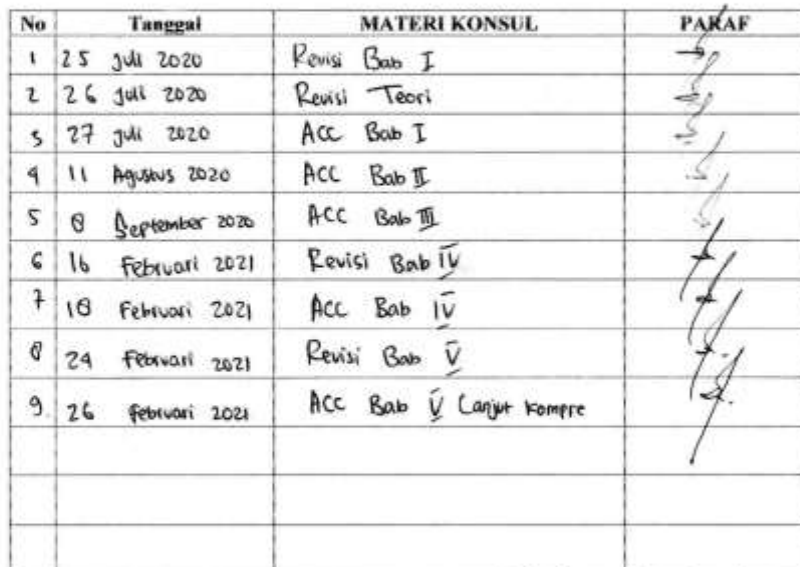 No Tanggal MATERI KONSUL PARAF
1 25 Juli 2020 Revisi Bab I
2 26 Juli 2020 Revisi Teori
3 27 Juli 2020 ACC Bab I
4 11 Agustus 2020 ACC Bab II
5 8 September 2020 ACC Bab III
6 16 Februari 2021 Revisi Bab IV
7 18 Februari 2021 ACC Bab IV
8 24 Februari 2021 Revisi Bab V
9. 26 Februari 2021 ACC Bab V Lanjut Kompre